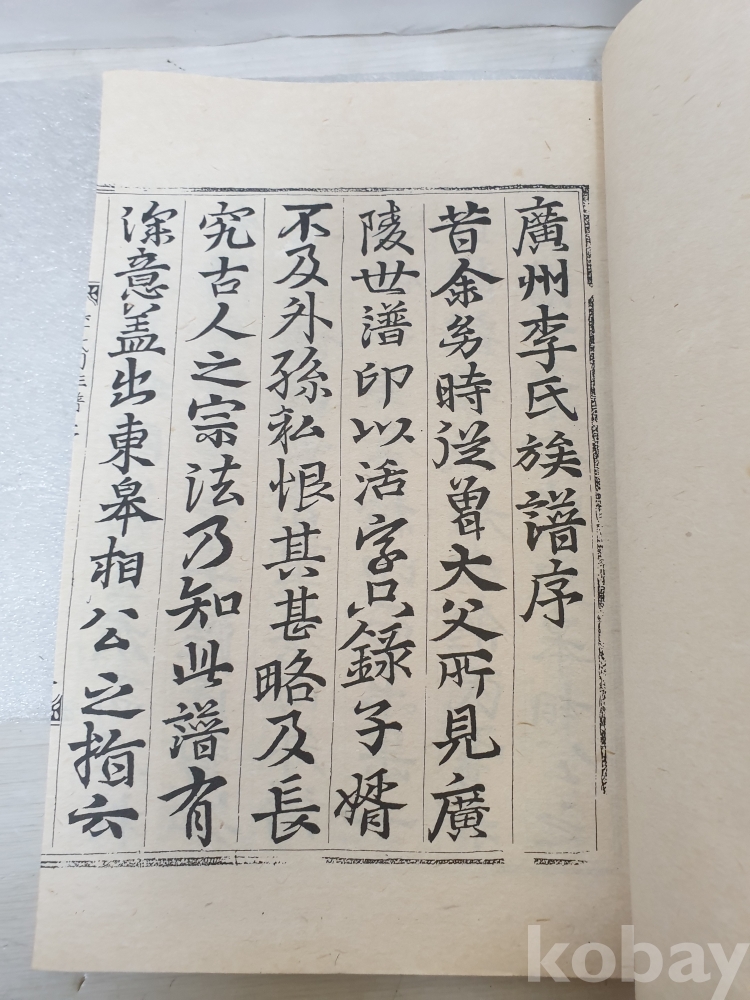 廣州李氏族譜序
昔余幼時從曾大父所見廣
陵世譜印以活字只錄子婿
不及外孫私恨其甚略及長
究古人之宗法乃知此譜有
深意盖出東皋相公之指云
kobay